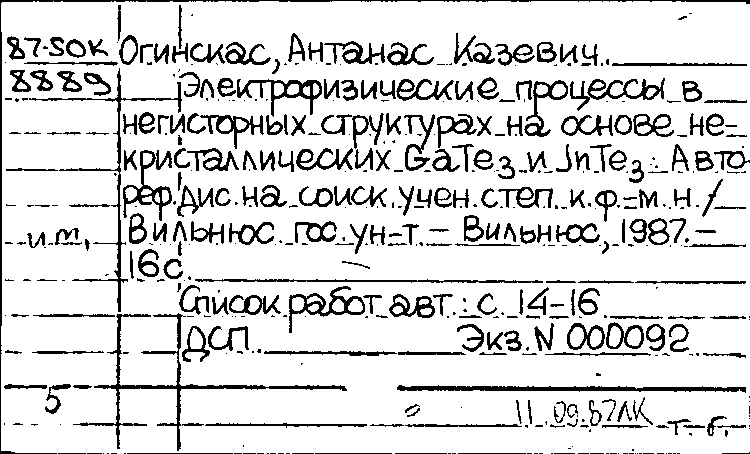 87-50K Огинскас, Антанас Казевич.
8889 Электрофизические процессы в
негисторных структурах на основе не-
кристаллических GaTe3 и JnTe3: Авто-
реф. дис. на соиск. учен. степ. к. ф.-м. н. /
и.т. Вильнюс. гос. ун-т. - Вильнюс, 1987. -
16с.
Список работ авт.: с. 14-16
ДСП. Экз. N 000092
5
11.09.87ЛК т. б.